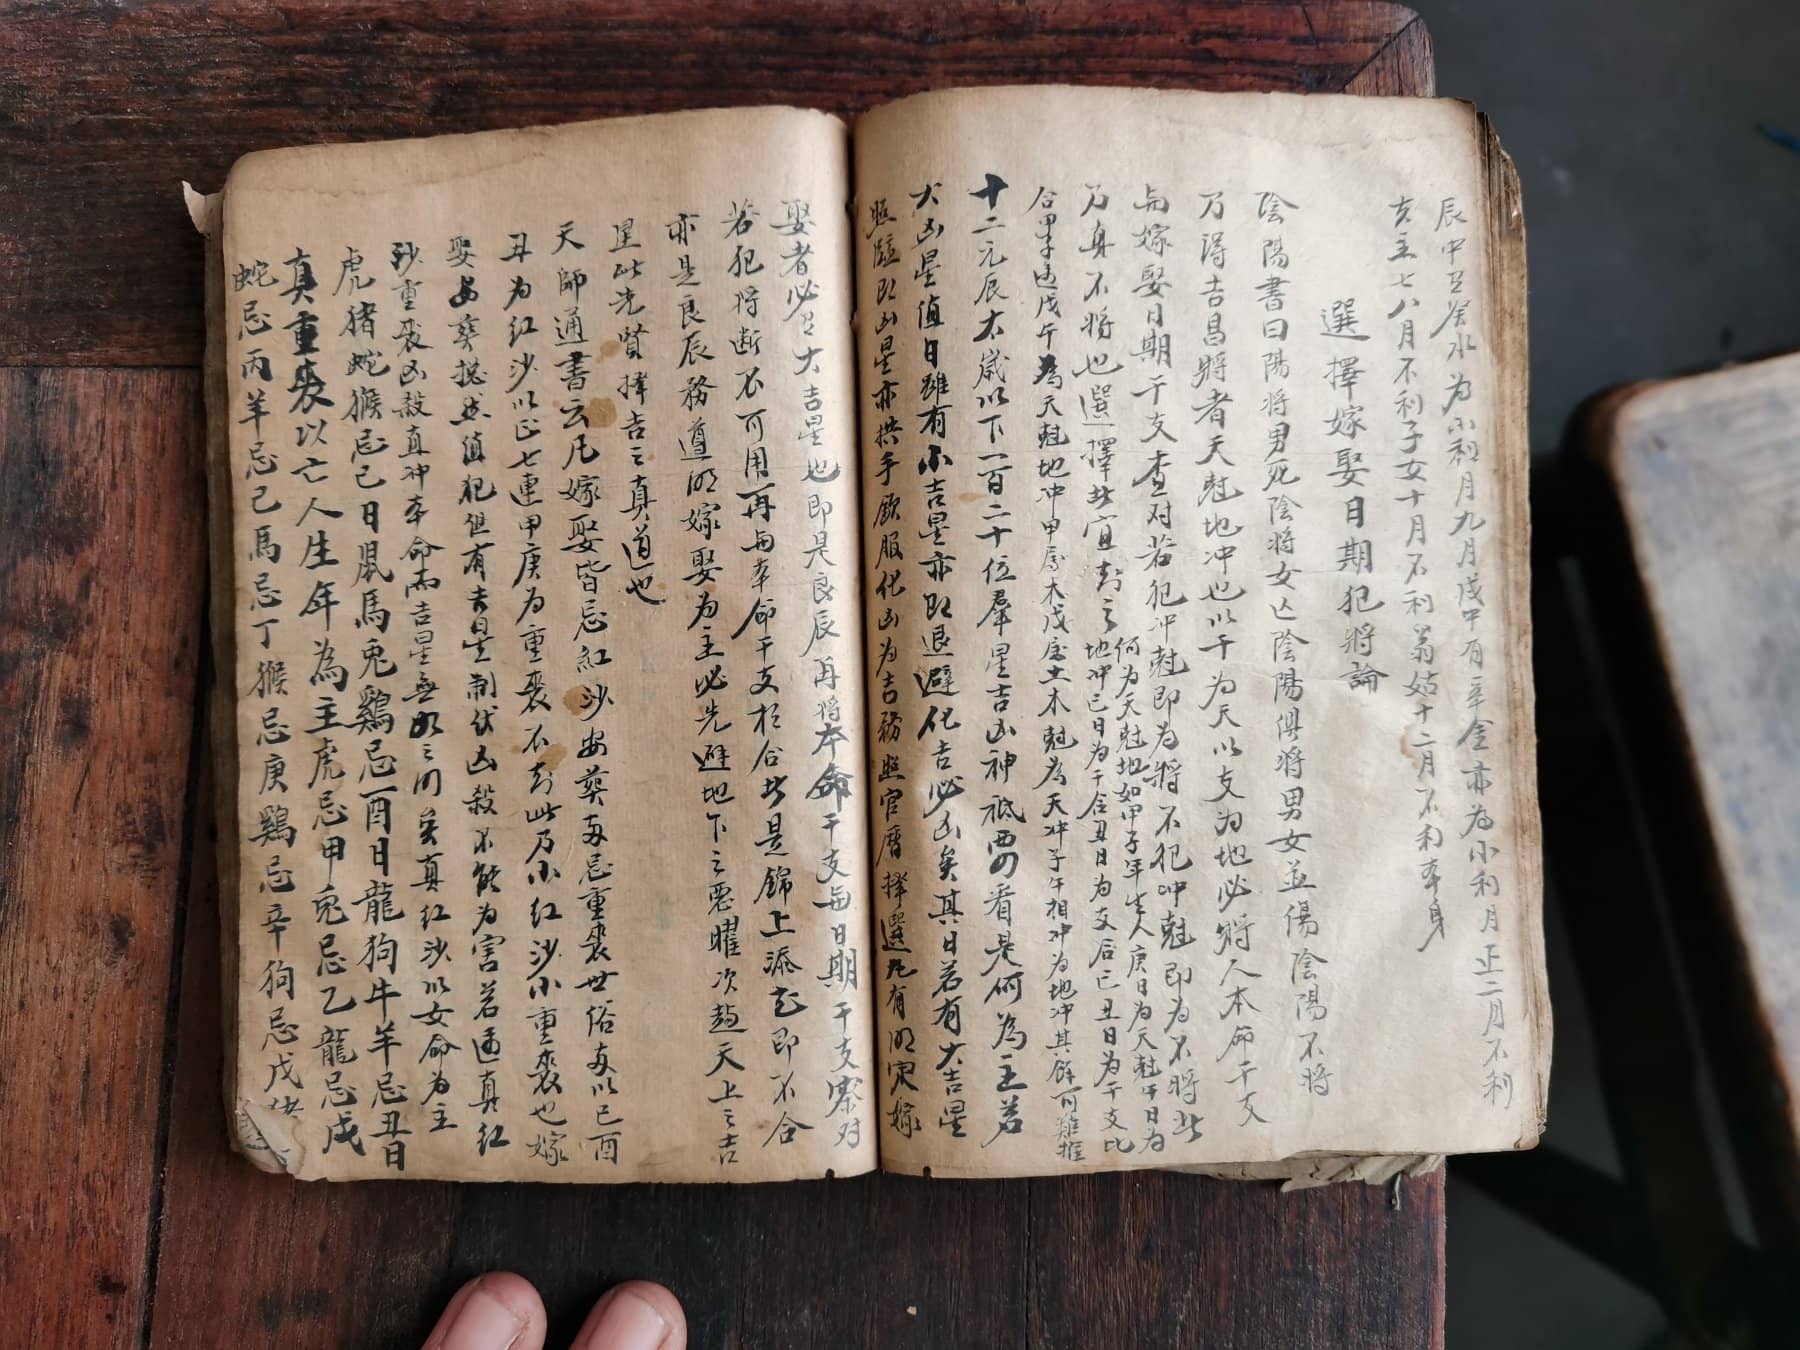 辰中癸水為小利月九月戌中有辛金亦為小利月正二月不利
亥主七八月不利子女十月不利翁姑十二月不利本身
選擇嫁娶日期犯將論
陰陽書曰陽將男死陰將女亡陰陽俱將男女並傷陰陽不將
乃得吉昌將者天尅地冲也以干為天以支為地必將人本命干支
与嫁娶日期干支查对若犯冲尅即為將不犯冲尅即為不將此
乃身不將也選擇此宜
何為天尅地如甲子年生人庚日為天尅午日為
地冲己日為干合丑日為支合己丑日為干支比
合甲子遇戊午為天尅地冲甲屬木戊屬土木尅為天冲子午相冲為地冲其餘可類推
十二元辰太歲以下一百二十位羣星吉凶神祇要看是何為主若
大凶星值日雖有小吉星亦即退避化吉必凶矣其日若有大吉星
照臨即凶星亦拱手欽服化凶為吉務照官曆擇選凡有明定嫁
娶者必大吉星也即是良辰再將本命干支与日期干支察对
若犯將断不可用再与本命干支相合此是錦上添花即不合
亦是良辰務遵明嫁娶為主必先避地下之惡曜次趋天上之吉
星此先賢擇吉之真道也
天師通書云凡嫁娶皆忌紅沙安葵每忌重喪世俗每以巳酉
丑為紅沙以正七連甲庚為重喪不知此乃小紅沙小重喪也嫁
娶安葵捴然值犯但有吉星制伏凶殺不能為害若遇真紅
沙重喪凶殺真冲本命而吉星無如之何矣真紅沙以女命為主
虎猪蛇猴忌巳日鼠馬兎鷄忌酉日龍狗牛羊忌丑日
真重喪以亡人生年為主虎忌甲兎忌乙龍忌戊
蛇忌丙羊忌己馬忌丁猴忌庚鷄忌辛狗忌戊猪